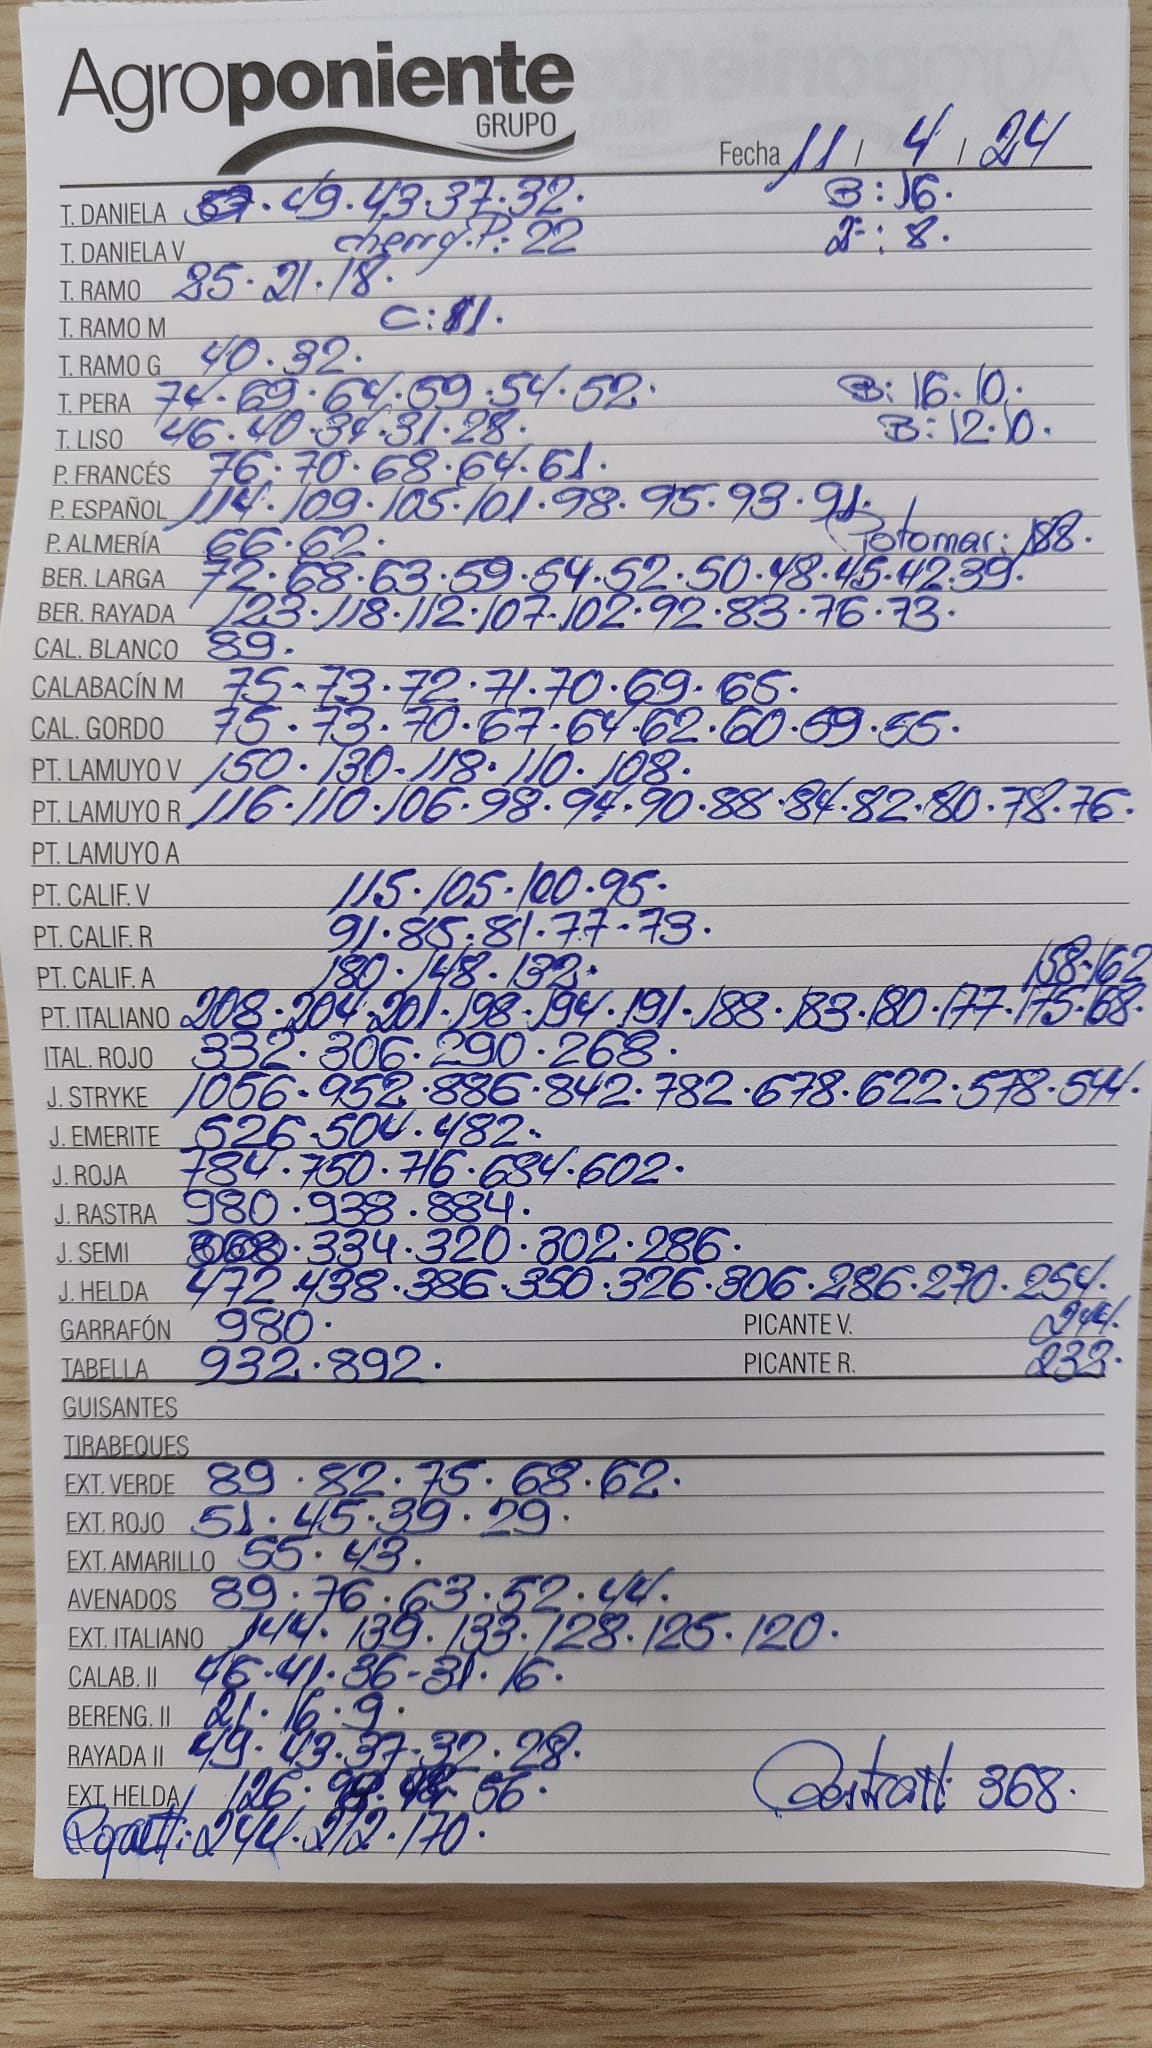 Agroponiente
GRUPO
Fecha 11 / 4 / 24
T. DANELA 57. 49. 43. 37. 32. B: 16.
T. DANIELA V cherry.P: 22 2ª: 8.
T. RAMO 25. 21. 18.
T. RAMO M C: 11.
T. RAMO G 40. 32.
T. PERA 74. 69. 64. 59. 54. 52. B: 16. 10.
T. LISO 46. 40. 34. 31. 28. B: 12. 10.
P. FRANCÉS 76. 70. 68. 64. 61.
P. ESPAÑOL 114. 109. 105. 101. 98. 95. 93. 91.
P. ALMERÍA 66. 62. Potomac: 188.
BER. LARGA 72. 68. 63. 59. 54. 52. 50. 48. 45. 42. 39.
BER. RAYADA 123. 118. 112. 107. 102. 92. 83. 76. 73.
CAL. BLANCO 89.
CALABACÍN M 75. 73. 72. 71. 70. 69. 65.
CAL. GORDO 75. 73. 70. 67. 64. 62. 60. 59. 55.
PT. LAMUYO V 150. 130. 118. 110. 108.
PT. LAMUYO R 116. 110. 106. 98. 94. 90. 88. 84. 82. 80. 78. 76.
PT. LAMUYO A
PT. CALIF. V 115. 105. 100. 95.
PT. CALIF. R 91. 85. 81. 77. 73.
PT. CALIF. A 180. 148. 132. 158. 162
PT. ITALIANO 208. 204. 201. 198. 194. 191. 188. 183. 180. 177. 175. 68.
ITAL. ROJO 332. 306. 290. 268.
J. STRYKE 1056. 952. 886. 842. 782. 678. 622. 578. 544.
J. EMERITE 526. 504. 482.
J. ROJA 784. 750. 716. 684. 602.
J. RASTRA 980. 938. 884.
J. SEMI 334. 320. 302. 286.
J. HELDA 472. 438. 386. 350. 326. 306. 286. 270. 254.
GARRAFÓN 980. PICANTE V. 244.
TABELLA 932. 892. PICANTE R. 233.
GUISANTES
TIRABEQUES
EXT. VERDE 89. 82. 75. 68. 62.
EXT. ROJO 51. 45. 39. 29.
EXT. AMARILLO 55. 43.
AVENADOS 89. 76. 63. 52. 44.
EXT. ITALIANO 144. 139. 133. 128. 125. 120.
CALAB. II 46. 41. 36. 31. 16.
BERENG. II 21. 16. 9.
RAYADA II 49. 43. 37. 32. 28.
EXT. HELDA 126. 56. 368.
244. 212. 170.